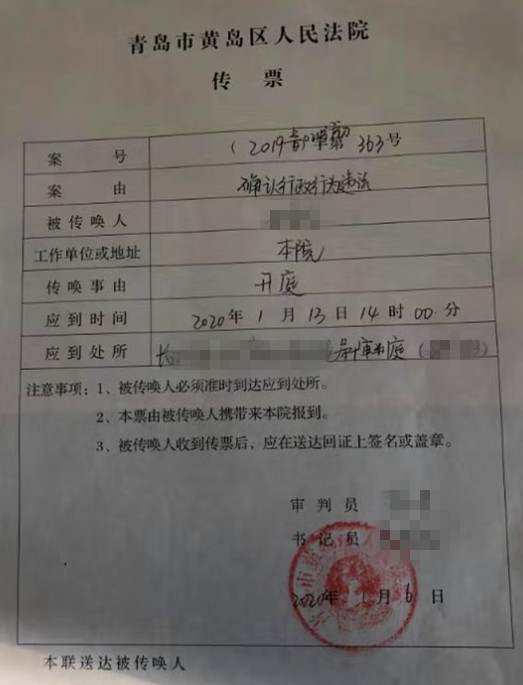 青岛市黄岛区人民法院
传票
案号 (2019 363号
案由 确认行政行为违法
被传唤人
工作单位或地址 本院
传唤事由 开庭
应到时间 2020年1月13日14时00分
应到处所 庭(
注意事项：1、被传唤人必须准时到达应到处所。
2、本票由被传唤人携带来本院报到。
3、被传唤人收到传票后，应在送达回证上签名或盖章。
审判员
书记员
2020年1月6日
本联送达被传唤人